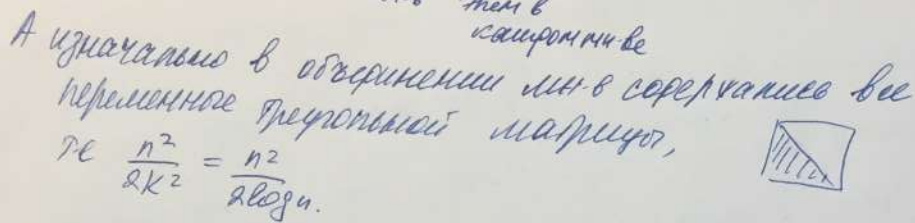 тем в
каждом мн-ве
А изначально в объединении мн-в содержались все
переменные треугольной матрицы,
те n²/2k² = n²/2logn.